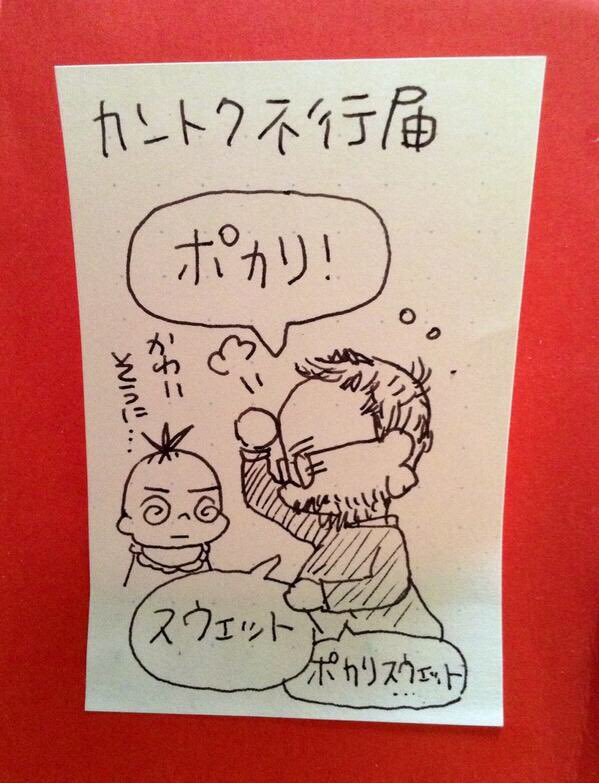 カントク不行届
ポカリ!
かわい
そうに…
スウェット
ポカリスウェット
…